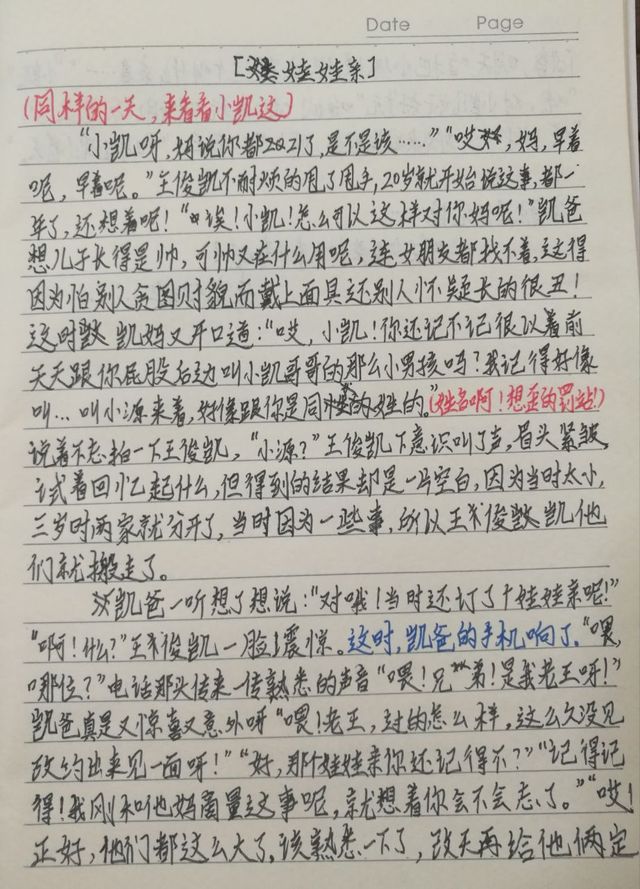 Date Page
[娃娃亲]
(同样的一天,来看看小凯这)
“小凯呀,妈说你都21了,是不是该……”“哎呀,妈,早着
呢,早着呢。”王俊凯不耐烦的甩了甩手,20岁就开始说这事,都一
年了,还想着呢!“唉!小凯!怎么可以这样对你妈呢!”凯爸
想儿子长得是帅,可帅又有什么用呢,连女朋友都找不着,这得
因为怕别人贪图财貌而戴上面具还别人怀疑长的很丑!
这时 凯妈又开口道:“哎,小凯!你还记不记很以着前
天天跟你屁股后边叫小凯哥哥的那么小男孩吗?我记得好像
叫…叫小源来着,好像跟你是同姓的。”(姓名啊!想歪的罚站!)
说着不忘拍一下王俊凯,“小源?”王俊凯下意识叫了声,眉头紧皱,
试着回忆起什么,但得到的结果却是一片空白,因为当时太小,
三岁时两家就分开了,当时因为一些事,所以王俊凯他
们就搬走了。
凯爸一听想了想说:“对哦!当时还订了个娃娃亲呢!”
“啊!什么?”王俊凯一脸震惊。这时,凯爸的手机响了.“喂,
哪位?”电话那头传来一传熟悉的声音“喂!兄弟!是我老王呀!”
凯爸真是又惊喜又意外呀“喂!老王,过的怎么样,这么久没见
改约出来见一面呀!”“好,那个娃娃亲你还记得不?”“记得记
得!我刚和他妈商量这事呢,就想着你会不会忘了。”“哎!
正好,他们都这么大了,该熟悉一下了,改天再给他俩定